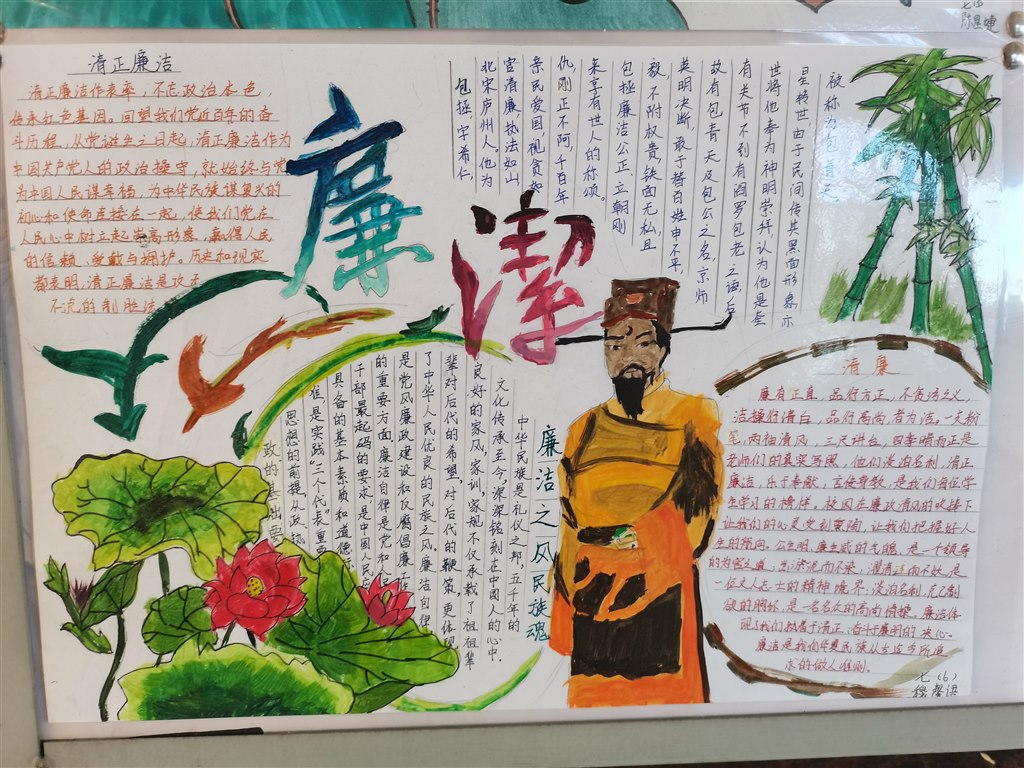 七(四)
清正廉洁
清正廉洁作表率，不忘政治本色，
传承红色基因。回望我们党近百年的奋
斗历程，从党诞生之日起，清正廉洁作为
中国共产党人的政治操守，就始终与党
为中国人民谋幸福，为中华民族谋复兴的
初心和使命连接在一起，使我们党在
人民心中树立起崇高形象，赢得人民
的信赖、爱戴与拥护。历史和现实
都表明，清正廉洁是
不流的
廉
潔
包拯，字希仁，
北宋庐州人。他为
官清廉，执法如山
亲民爱国，视贪如
仇，刚正不阿，千百年
来享有世人的称颂。
包拯廉洁公正、立朝刚
毅，不附权贵，铁面无私，且
英明决断，敢于替百姓申不平，
故有包青天及包公之名，京师
有关节不到，有阎罗包老之语。后
世将他奉为神明崇拜，认为他是奎
星转世，由于民间传其黑面形象，亦
被称为包青天
廉洁之风民族魂
中华民族是礼仪之邦，五千年的
文化传承至今，深深铭刻在中国人的心中，
良好的家风，家训，家规不仅承载了祖祖辈
辈对后代的希望，对后代的鞭策，更体现
了中华人民优良的民族之风，廉洁自律
是党风廉政建设和反腐倡廉工作
的重要方面，廉洁自律是党和人民
干部最起码的要求，是中国人民
具备的基本素质和道德
准，是实践“三个代表”重要
思想的前提，从政
政的基
清廉
廉有正直，品行方正，不贪污之义，
洁操行清白，品行高尚者为洁。一支粉
笔，两袖清风，三尺讲台，四季晴雨正是
老师们的真实写照，他们淡泊名利，清正
廉洁，乐于奉献，言传身教，是我们每位学
生学习的榜样。校园在廉政清风的吹拂下
让我们的心灵受到熏陶，让我们把握好人
生的航向。公生明，廉生威的气魄，是一个领导
的为官之道，出淤泥而不染，濯清涟而不妖，是
一位文人志士的精神境界，淡泊名利，克己制
欲的胸怀，是一名名众的高尚情操。廉洁体
现了我们执着于清正、奋斗于廉明的决心。
廉洁是我们华夏民族从古至今所追
求的做人准则。
七(6)
穆馨语